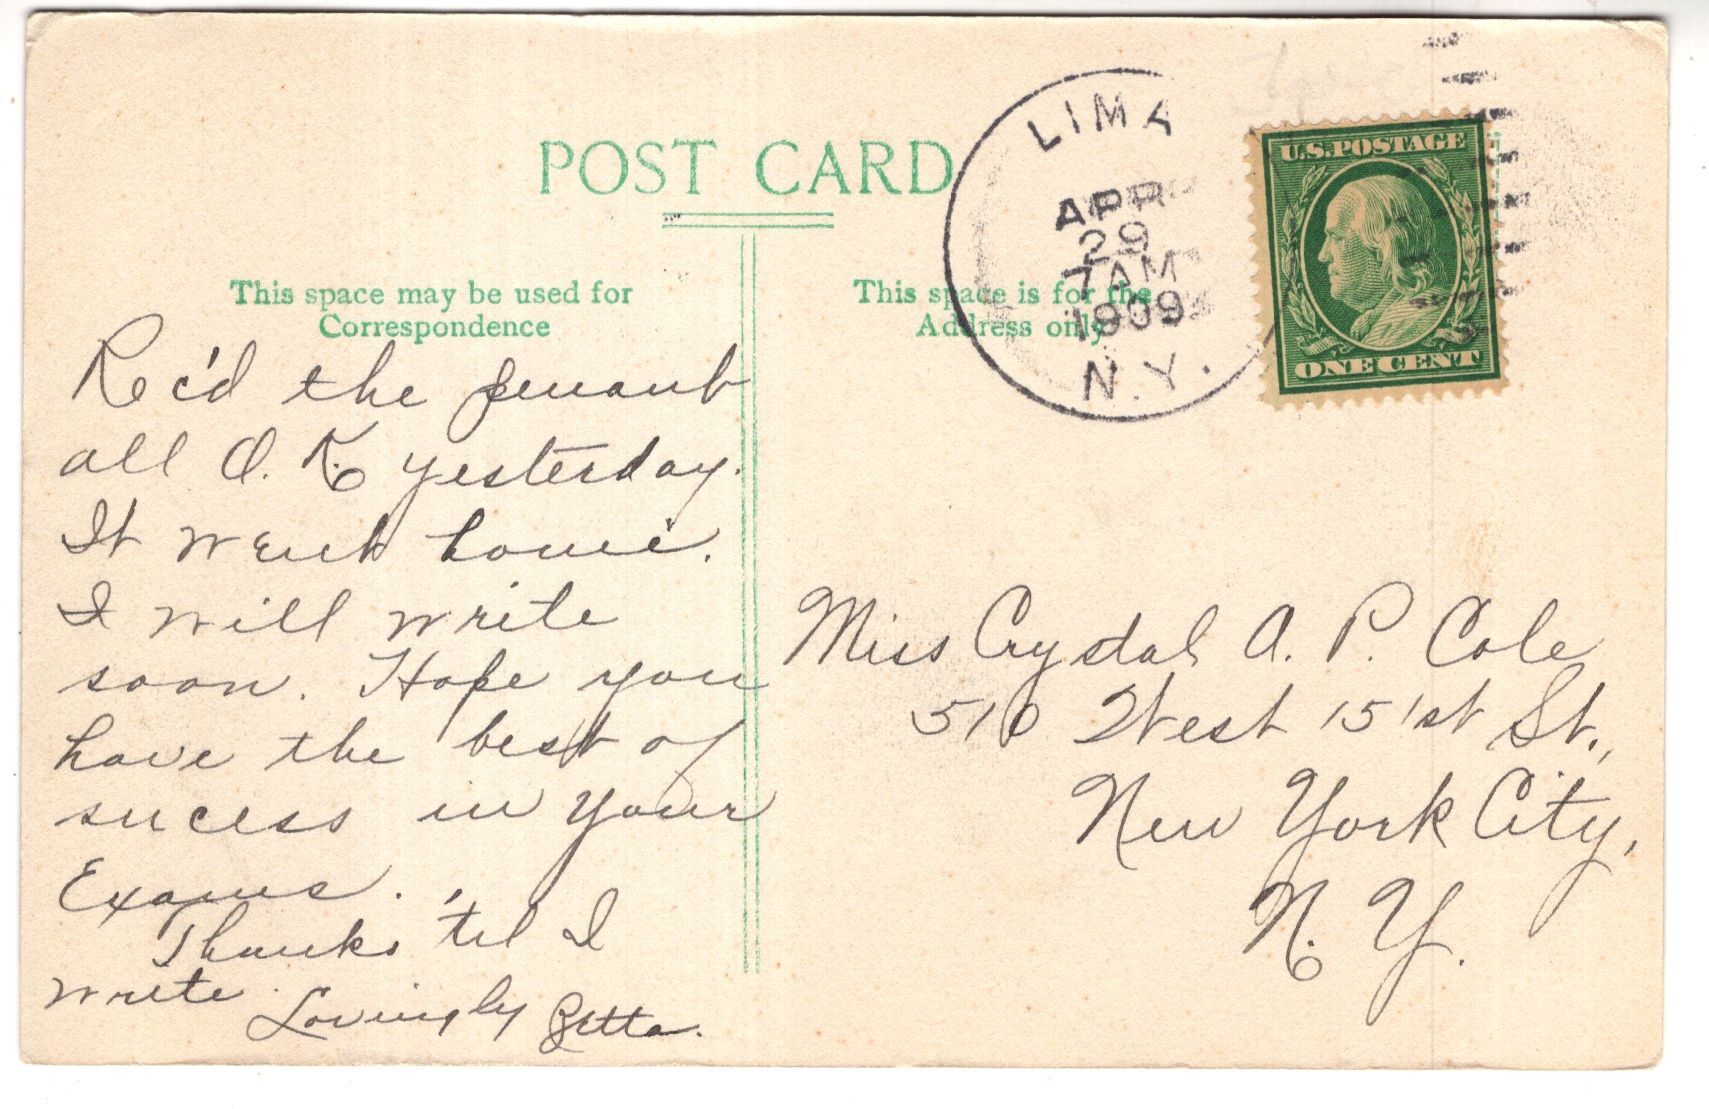 POST CARD
This space may be used for
Correspondence
This space is for the
Address only
LIMA
APR
29
7 AM
1909
N.Y.
U.S. POSTAGE
ONE CENT
Rec'd the penant
all O.K. yesterday.
It went home.
I will write
soon. Hope you
have the best of
sucess in your
Exams.
Thanks 'til I
write.
Lovingly
Miss Crystal A. P. Cole
510 West 151st St.,
New York City,
N. Y.